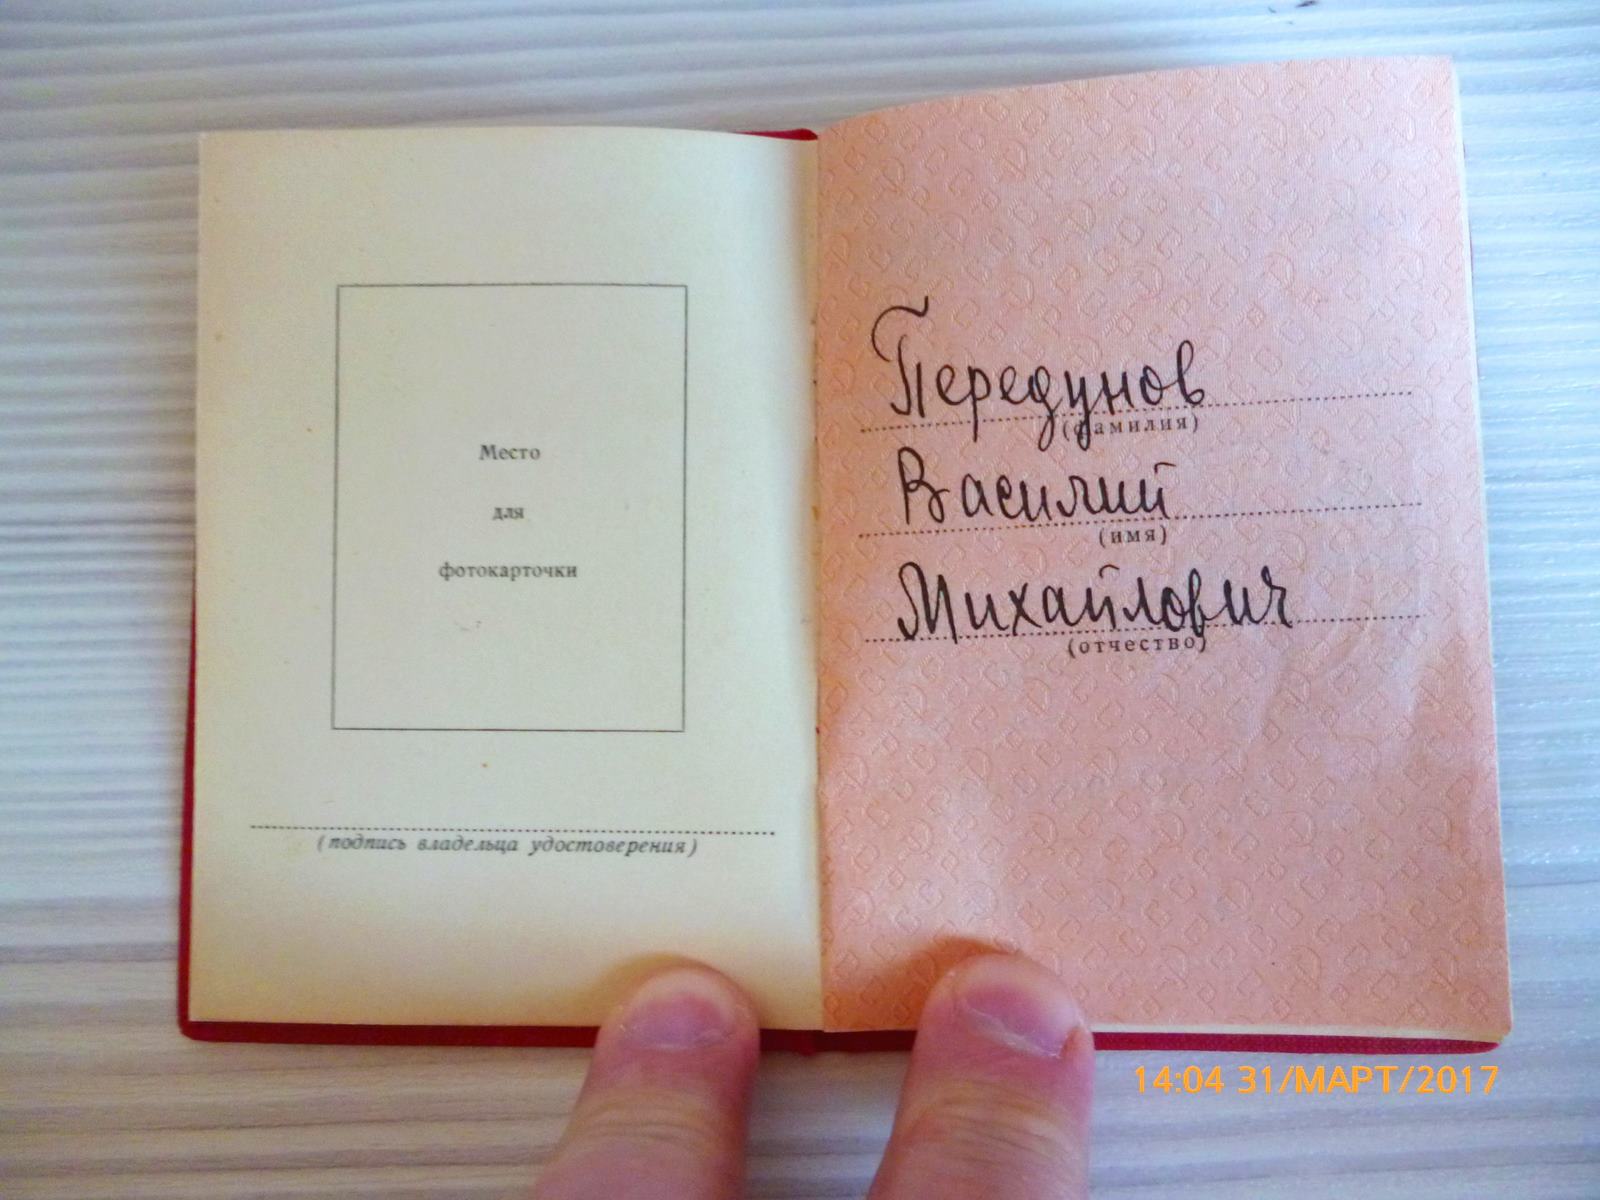 Место
для
фотокарточки
(подпись владельца удостоверения)
Передунов
(фамилия)
Василий
(имя)
Михайлович
(отчество)
14:04 31/МАРТ/2017